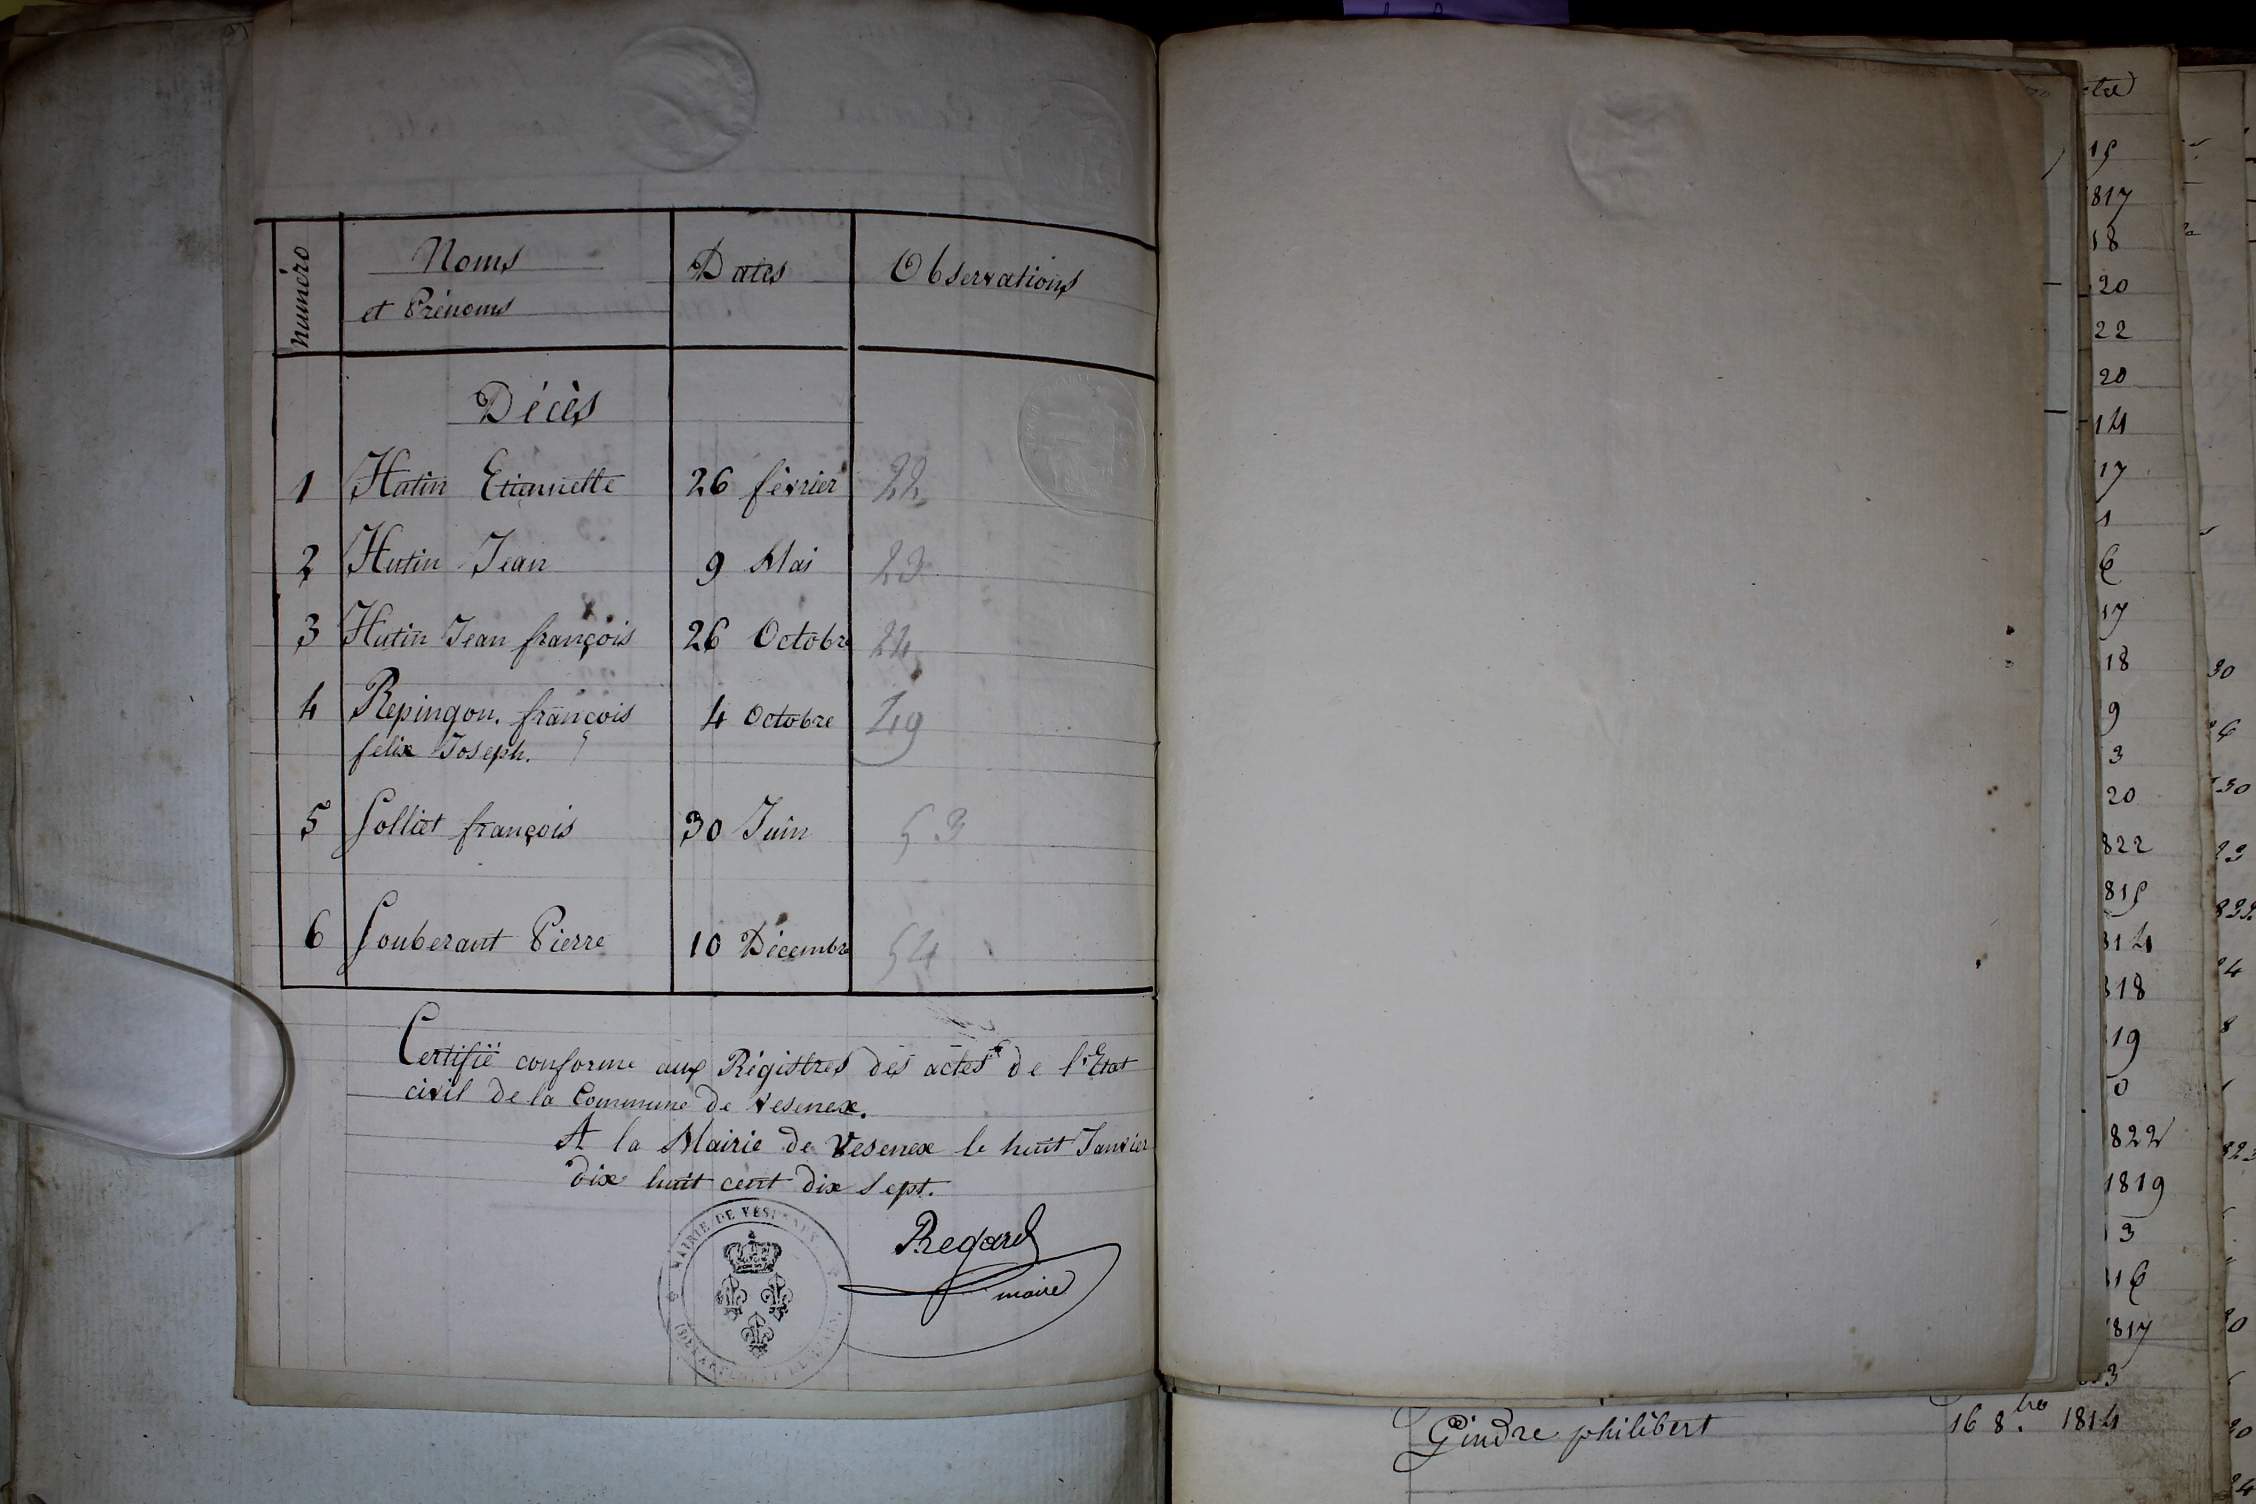 numéro
Noms
et Prénoms
Dates
Observations
Décès
1 Hutin Etiennette 26 février 22
2 Hutin Jean 9 Mai 23
3 Hutin Jean françois 26 Octobre 24
4 Repingon. françois 4 Octobre 49
felix Joseph.
5 Solliet françois 30 Juin 53
6 Souberant Pierre 10 Décembre 54
Certifié conforme aux Régistres des actes de l'Etat
civil de la Commune de Vesenex.
A la Mairie de Vesenex le huit Janvier
dix huit cent dix sept.
MAIRIE DE
Regard
maire
Gindre philibert 16 8.bre 1814
19
817
18
20
22
20
14
17
1
6
17
18
9
3
20
822
819
814
818
19
0
822
1819
3
16
817
3